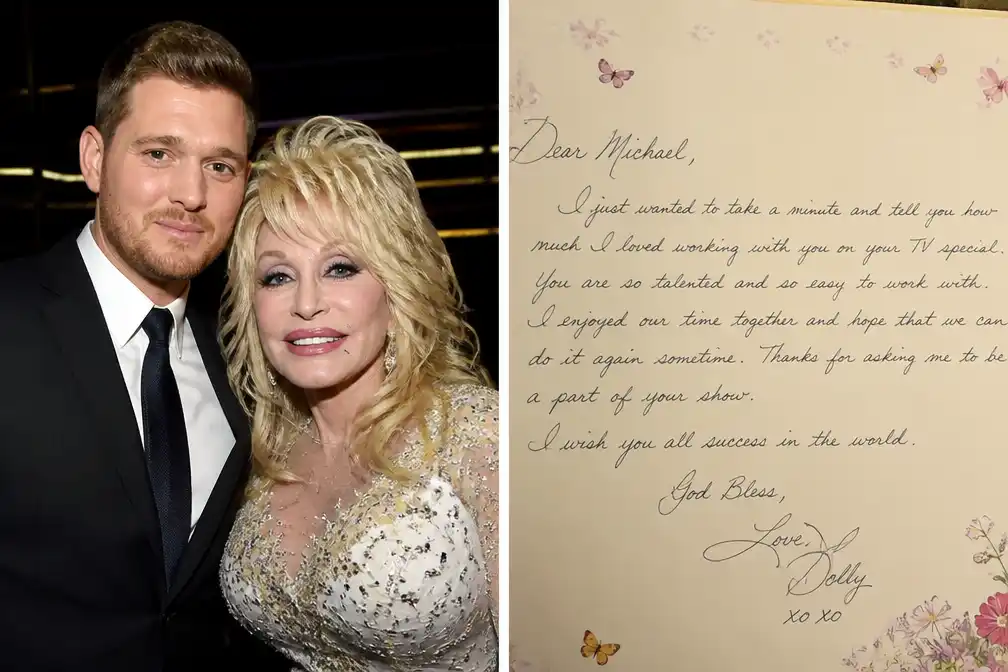 Dear Michael,
I just wanted to take a minute and tell you how
much I loved working with you on your TV special.
You are so talented and so easy to work with.
I enjoyed our time together and hope that we can
do it again sometime. Thanks for asking me to be
a part of your show.
I wish you all success in the world.
God Bless,
Love,
Dolly
xo xo